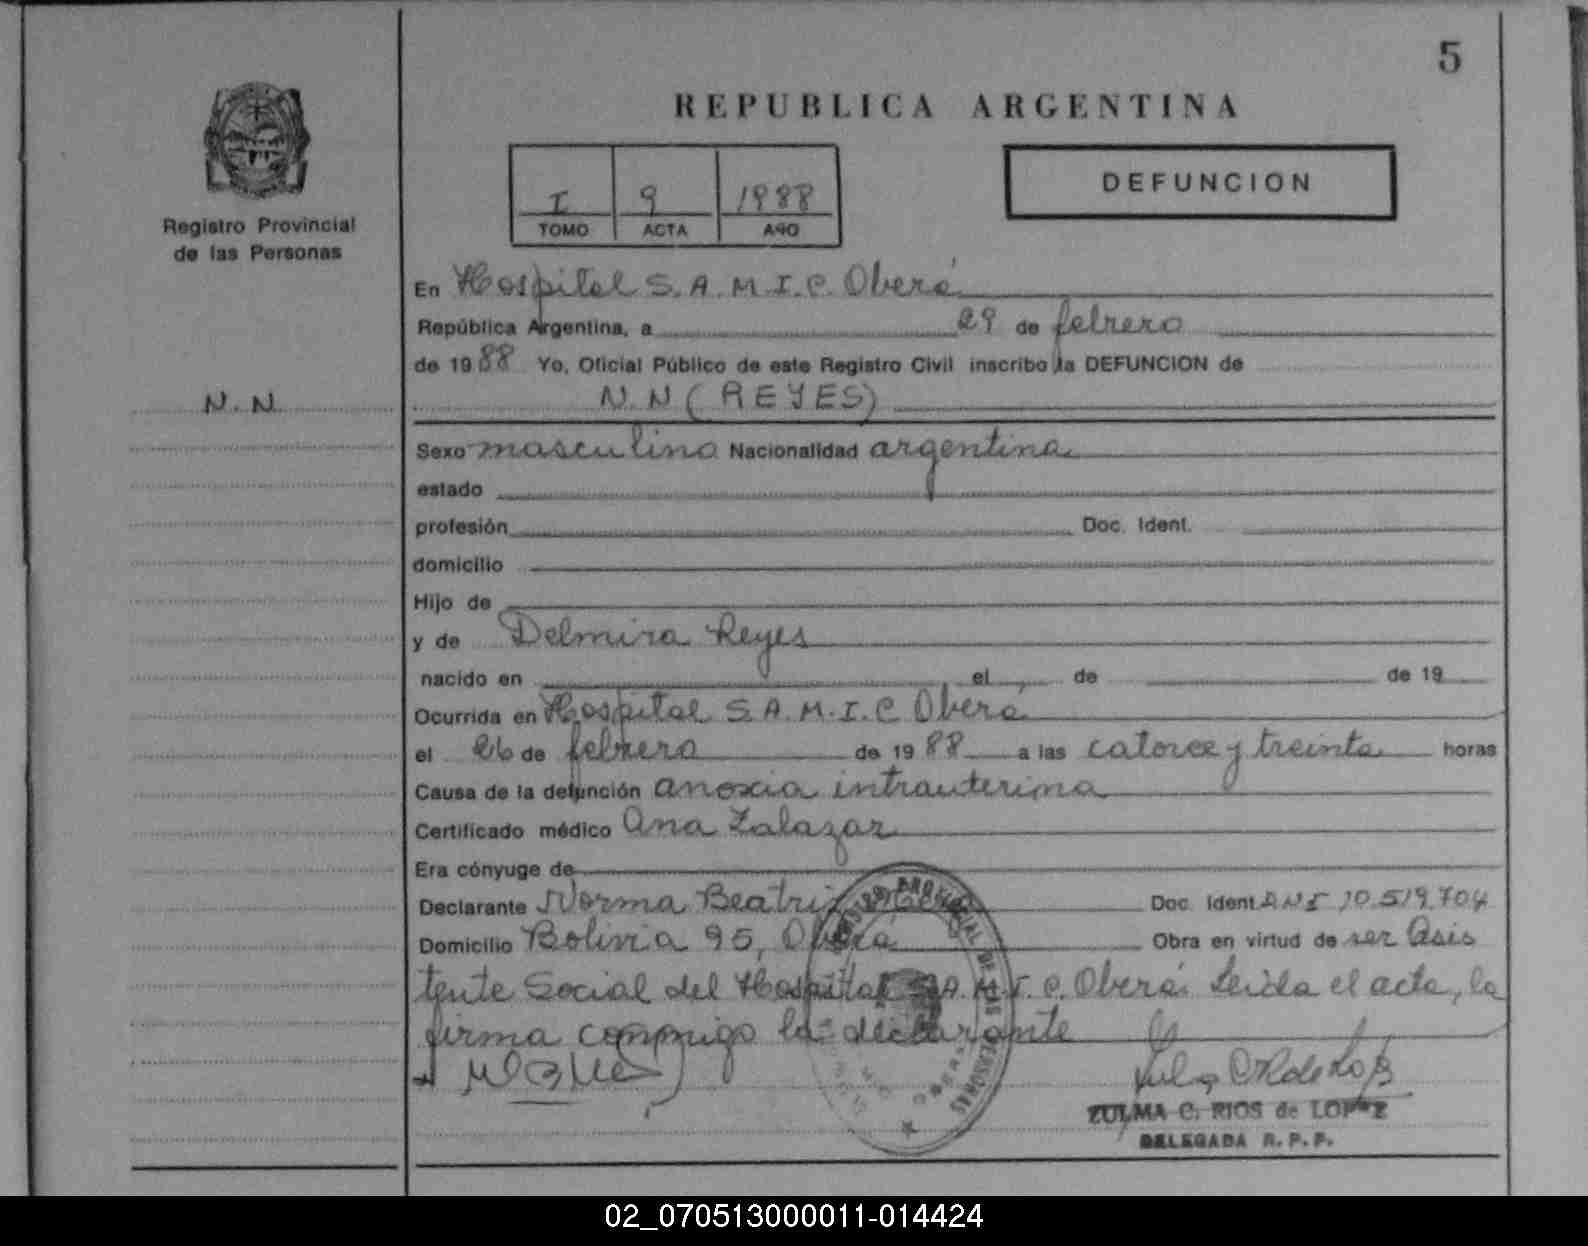 5
REPUBLICA ARGENTINA
I 9 1988
TOMO ACTA AÑO
DEFUNCION
Registro Provincial
de las Personas
N. N.
En Hospital S. A. M. I. C. Oberá
República Argentina, a 29 de febrero
de 1988 Yo, Oficial Público de este Registro Civil inscribo la DEFUNCION de
N. N (REYES)
Sexo masculino Nacionalidad argentina
estado
profesión Doc. Ident.
domicilio
Hijo de
y de Delmira Reyes
nacido en , el de de 19
Ocurrida en Hospital S. A. M. I. C Oberá
el 26 de febrero de 1988 a las catorce y treinta horas
Causa de la defunción anoxia intrauterina
Certificado médico Ana Zalazar
Era cónyuge de
Declarante Norma Beatriz Doc. Ident. DNI 10.519.704
Domicilio Bolivia 95, Oberá Obra en virtud de ser Asis
tente Social del Hospital S.A.M.I.C. Oberá. Leída el acta, la
firma conmigo la declarante
ZULMA C. RIOS de LOPEZ
DELEGADA R. P. P.
02_070513000011-014424